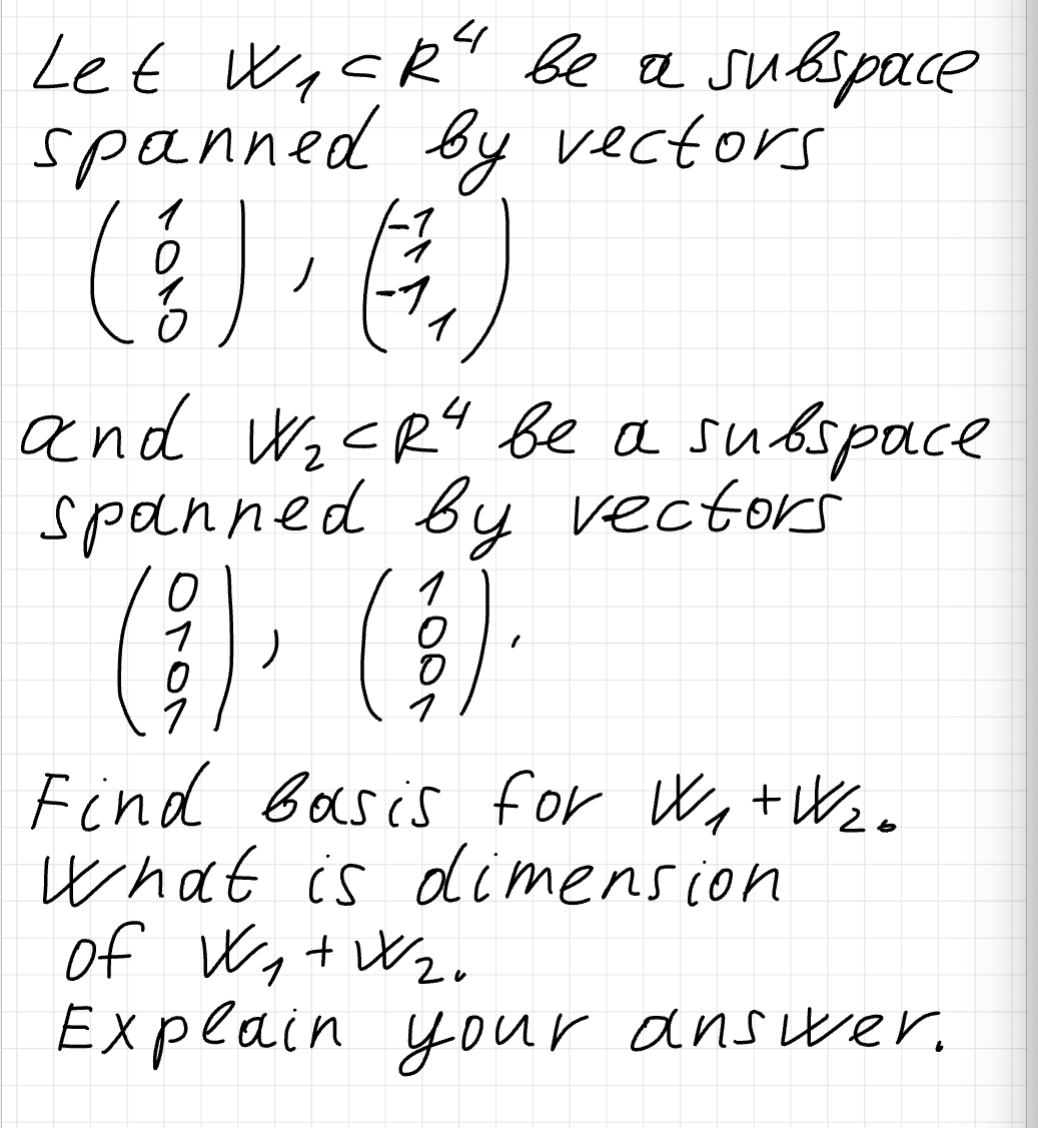 Let W₁ ⊂ R⁴ be a subspace
spanned by vectors
(1 0 1 0), (-1 1 -1 1)
and W₂ ⊂ R⁴ be a subspace
spanned by vectors
(0 1 0 1), (1 0 0 1).
Find basis for W₁ + W₂.
What is dimension
of W₁ + W₂.
Explain your answer.